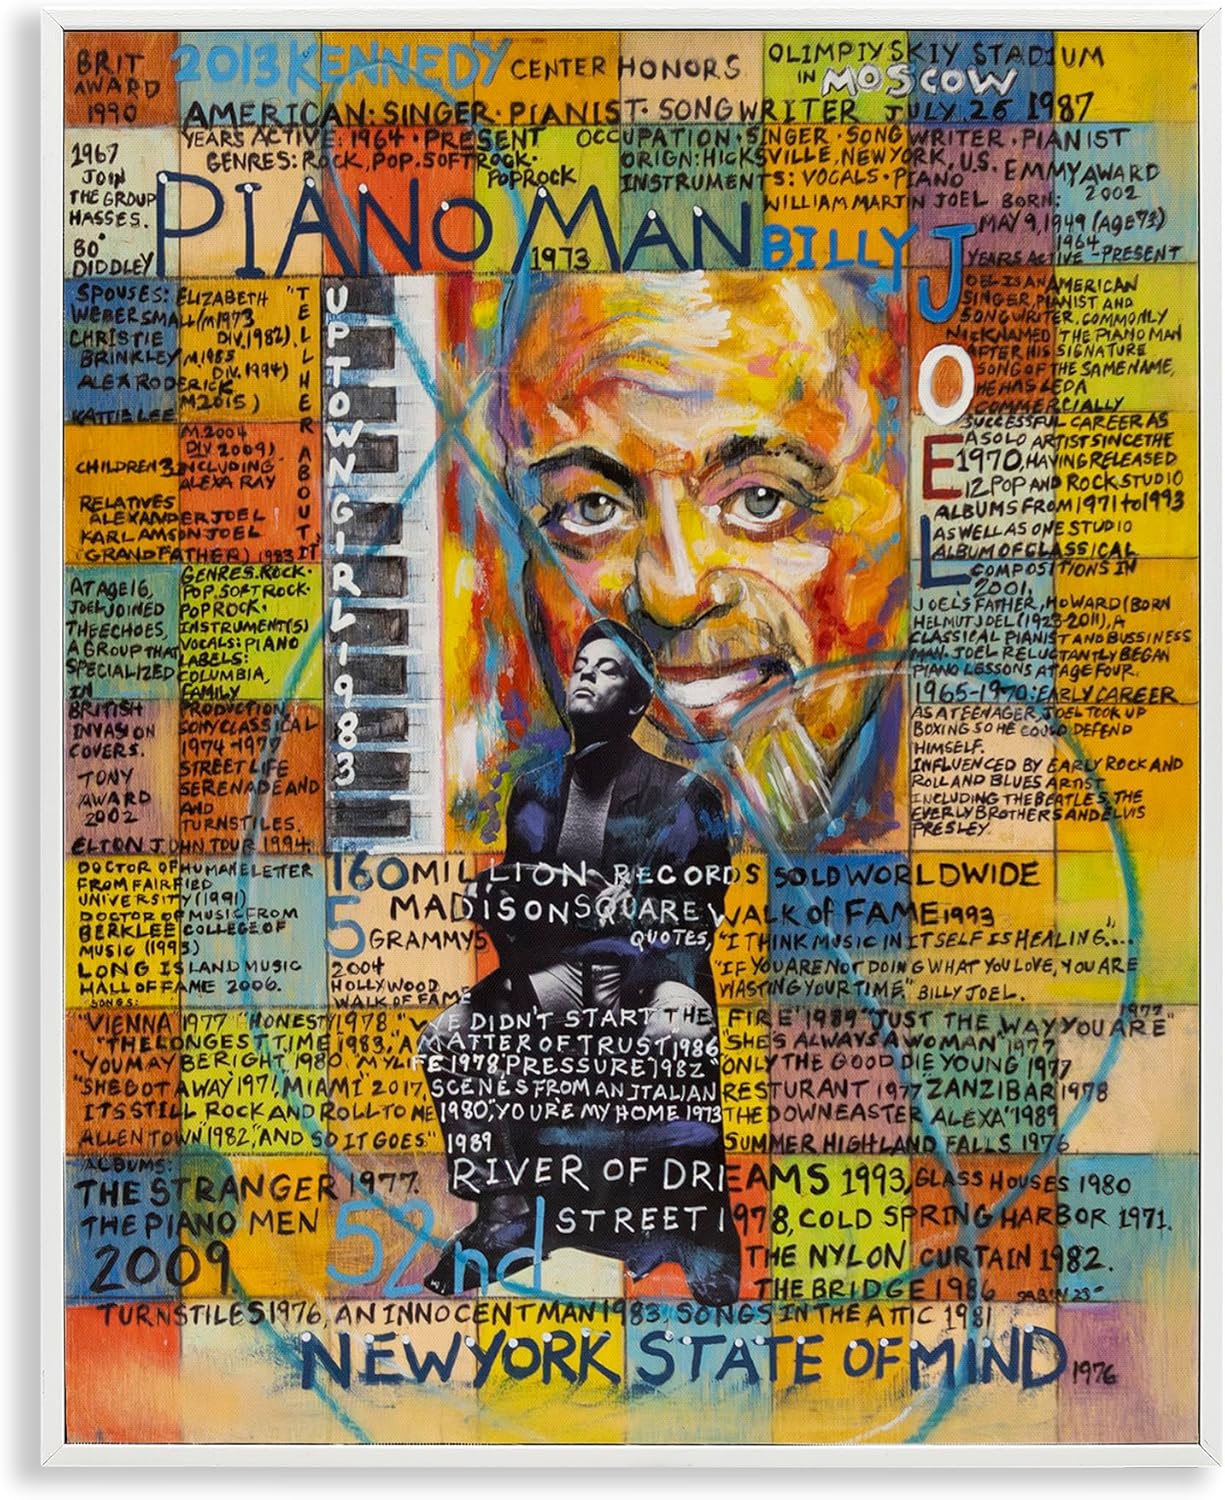 BRIT
AWARD
1990
2013 KENNEDY CENTER HONORS
OLIMPIYSKIY STADIUM
IN MOSCOW
AMERICAN· SINGER· PIANIST· SONGWRITER JULY 26 1987
YEARS ACTIVE: 1964 · PRESENT OCCUPATION · SINGER · SONG WRITER · PIANIST
GENRES: ROCK, POP. SOFT ROCK·
POPROCK
ORIGN: HICKSVILLE, NEW YORK, U.S.
INSTRUMENTS: VOCALS · PIANO
EMMY AWARD
2002
1967
JOIN
THE GROUP
HASSES.
BO
DIDDLEY
PIANO MAN
1973
WILLIAM MARTIN JOEL BORN:
MAY 9, 1949 (AGE 73)
1964
YEARS ACTIVE -PRESENT
BILLY
JOEL
SPOUSES: ELIZABETH
WEBER SMALL (M1973
DIV, 1982).
CHRISTIE
BRINKLEY M, 1985
DIV. 1994)
ALEX RODERICK
M2015)
KATTIE LEE
M. 2004
DIV 2009)
CHILDREN 3 INCLUDING
ALEXA RAY
RELATIVES
ALEXANDER JOEL
KARL AMSON JOEL
(GRANDFATHER) 1983
"TELL HER ABOUT IT"
UPTOWN GIRL, 1983
JOEL IS AN AMERICAN
SINGER, PIANIST AND
SONGWRITER, COMMONLY
NICKNAMED THE PIANO MAN
AFTER HIS SIGNATURE
SONG OF THE SAME NAME,
HE HAS LED A
COMMERCIALLY
SUCCESSFUL CAREER AS
A SOLO ARTIST SINCE THE
1970, HAVING RELEASED
12 POP AND ROCK STUDIO
ALBUMS FROM 1971 to 1993
AS WELL AS ONE STUDIO
ALBUM OF CLASSICAL
COMPOSITIONS IN
2001.
JOELS FATHER, HOWARD (BORN
HELMUT JOEL (1923-2011), A
CLASSICAL PIANIST AND BUSSINESS
MAN. JOEL RELUCTANTLY BEGAN
PIANO LESSONS AT AGE FOUR.
1965-1970: EARLY CAREER
AS A TEENAGER, JOEL TOOK UP
BOXING SO HE COULD DEFEND
HIMSELF.
INFLUENCED BY EARLY ROCK AND
ROLL AND BLUES ARTIST
INCLUDING THE BEATLES, THE
EVERLY BROTHERS AND ELVIS
PRESLEY
AT AGE 16,
JOEL JOINED
THE ECHOES,
A GROUP THAT
SPECIALIZED
IN
BRITISH
INVASION
COVERS.
TONY
AWARD
2002
ELTON JOHN TOUR 1994
GENRES. ROCK·
POP, SOFT ROCK·
POPROCK·
INSTRUMENT(S)
VOCALS: PIANO
LABELS:
COLUMBIA,
FAMILY
PRODUCTION,
SONY CLASSICAL
1974-1977
STREETLIFE
SERENADE AND
AND
TURNSTILES.
DOCTOR OF HUMANE LETTER
FROM FAIRFIED
UNIVERSITY (1991)
DOCTOR OF MUSIC FROM
BERKLEE COLLEGE OF
MUSIC (1993)
LONG ISLAND MUSIC
HALL OF FAME 2006.
160 MILLION RECORDS SOLD WORLDWIDE
MADISON SQUARE WALK OF FAME 1993
5 GRAMMYS
2004
HOLLYWOOD
WALK OF FAME
QUOTES, "I THINK MUSIC IN ITSELF IS HEALING."...
"IF YOU ARE NOT DOING WHAT YOU LOVE, YOU ARE
WASTING YOUR TIME." BILLY JOEL.
SONGS:
"VIENNA 1977 "HONESTY 1978 "WE DIDN'T START THE FIRE" 1989 "JUST THE WAY YOU ARE" 1977
"THE LONGEST TIME 1983, "A MATTER OF TRUST 1986 "SHE'S ALWAYS A WOMAN" 1977
"YOU MAY BE RIGHT 1980 "MY LIFE 1978 "PRESSURE 1982" ONLY THE GOOD DIE YOUNG 1977
"SHE GOT A WAY 1971, MIAMI 2017, SCENES FROM AN ITALIAN RESTURANT 1977 ZANZIBAR 1978
ITS STILL ROCK AND ROLL TO ME 1980, "YOU'RE MY HOME 1973 THE DOWNEASTER ALEXA" 1989
ALLENTOWN" 1982, "AND SO IT GOES" 1989
SUMMER HIGHLAND FALLS 1976
ALBUMS:
THE STRANGER 1977.
RIVER OF DREAMS 1993, GLASS HOUSES 1980
THE PIANO MEN
2009
52nd STREET 1978, COLD SPRING HARBOR 1971.
THE NYLON CURTAIN 1982.
THE BRIDGE 1986
SABIN 23
TURNSTILES 1976, AN INNOCENT MAN 1983, SONGS IN THE ATTIC 1981
NEW YORK STATE OF MIND 1976